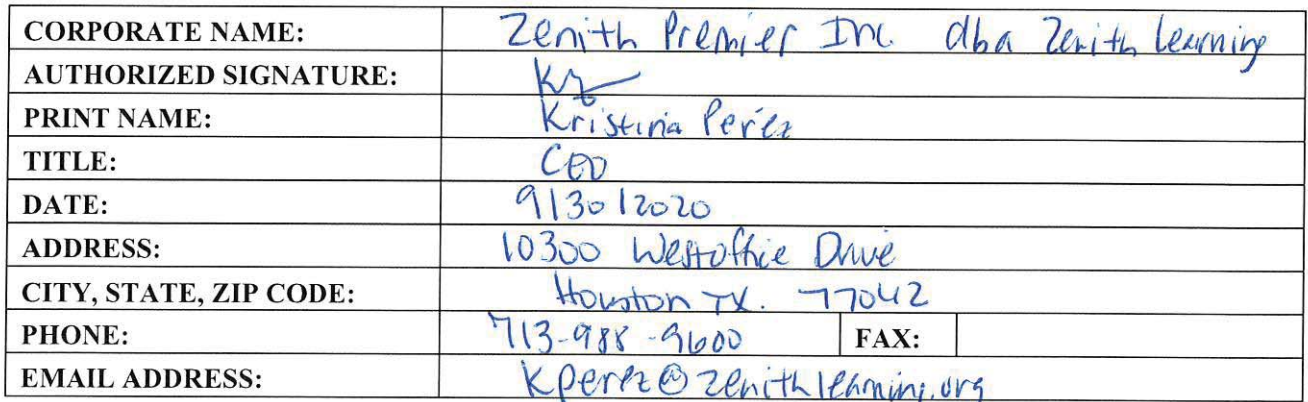 CORPORATE NAME: Zenith Premier Inc dba Zenith Learning
AUTHORIZED SIGNATURE:
PRINT NAME: Kristina Perez
TITLE: CEO
DATE: 9/30/2020
ADDRESS: 10300 Westoffice Drive
CITY, STATE, ZIP CODE: Houston TX. 77042
PHONE: 713-988-9600 FAX:
EMAIL ADDRESS: Kperez@zenithlearning.org